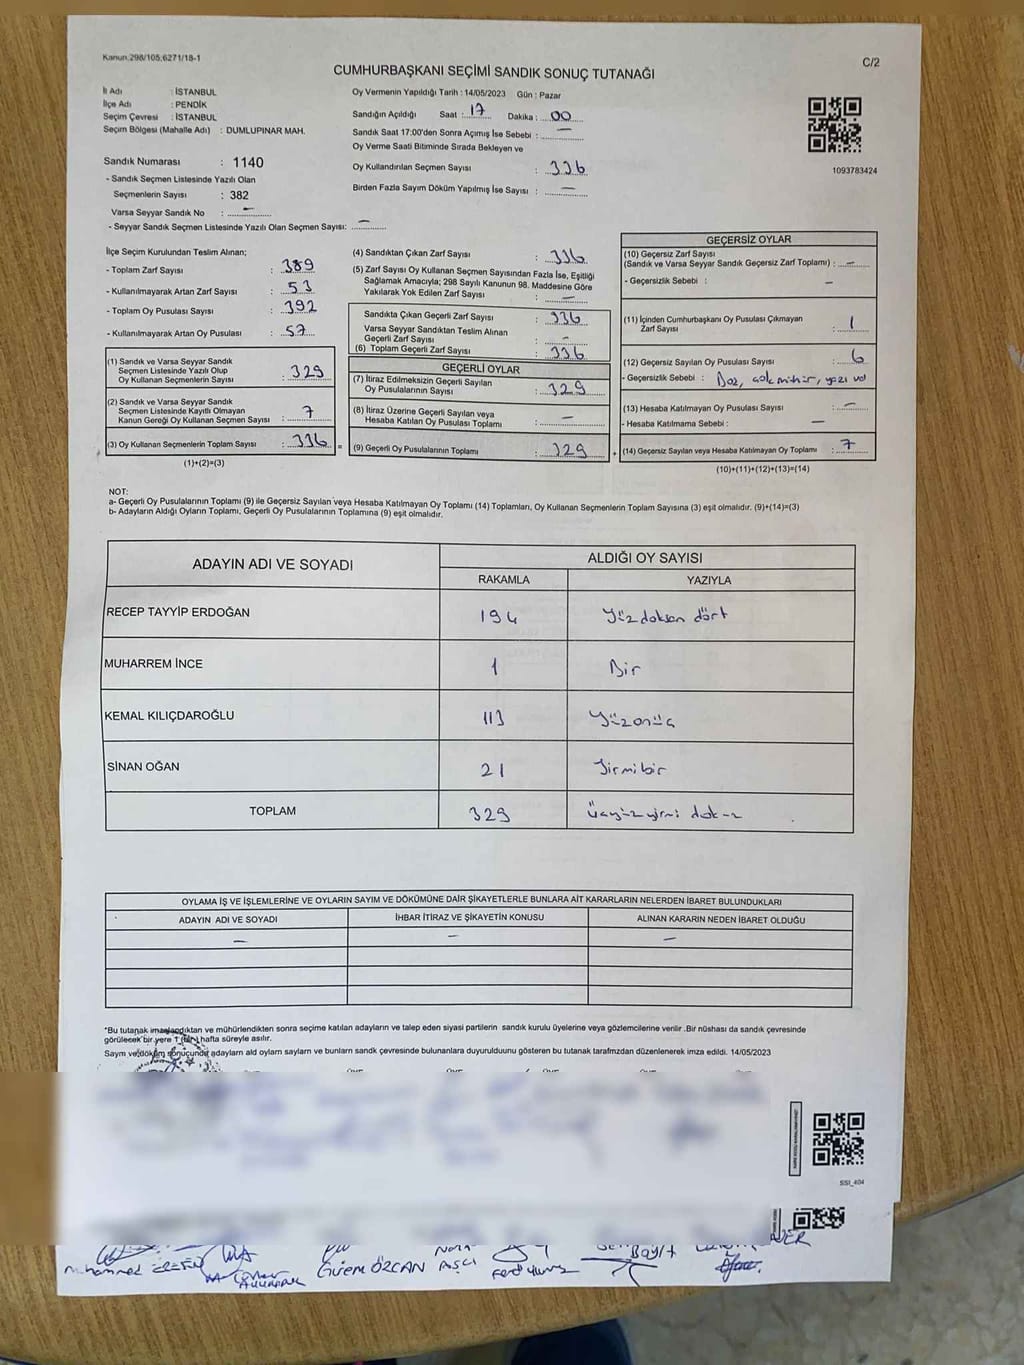 Kanun.298/105.6271/18-1
C/2
CUMHURBAŞKANI SEÇİMİ SANDIK SONUÇ TUTANAĞI
İl Adı : İSTANBUL
İlçe Adı : PENDİK
Seçim Çevresi : İSTANBUL
Seçim Bölgesi (Mahalle Adı) : DUMLUPINAR MAH.
Sandık Numarası : 1140
- Sandık Seçmen Listesinde Yazılı Olan
Seçmenlerin Sayısı : 382
Varsa Seyyar Sandık No : –
- Seyyar Sandık Seçmen Listesinde Yazılı Olan Seçmen Sayısı: –
Oy Vermenin Yapıldığı Tarih : 14/05/2023 Gün : Pazar
Sandığın Açıldığı Saat : 17 Dakika : 00
Sandık Saat 17:00'den Sonra Açımış İse Sebebi : –
Oy Verme Saati Bitiminde Sırada Bekleyen ve
Oy Kullandırılan Seçmen Sayısı : 336
Birden Fazla Sayım Döküm Yapılmış İse Sayısı : –
1093783424
İlçe Seçim Kurulundan Teslim Alınan;
- Toplam Zarf Sayısı : 389
- Kullanılmayarak Artan Zarf Sayısı : 53
- Toplam Oy Pusulası Sayısı : 392
- Kullanılmayarak Artan Oy Pusulası : 57
(1) Sandık ve Varsa Seyyar Sandık
Seçmen Listesinde Yazılı Olup
Oy Kullanan Seçmenlerin Sayısı : 329
(2) Sandık ve Varsa Seyyar Sandık
Seçmen Listesinde Kayıtlı Olmayan
Kanun Gereği Oy Kullanan Seçmen Sayısı : 7
(3) Oy Kullanan Seçmenlerin Toplam Sayısı : 336 =
(1)+(2)=(3)
(4) Sandıktan Çıkan Zarf Sayısı : 336
(5) Zarf Sayısı Oy Kullanan Seçmen Sayısından Fazla İse, Eşitliği
Sağlamak Amacıyla; 298 Sayılı Kanunun 98. Maddesine Göre
Yakılarak Yok Edilen Zarf Sayısı : –
Sandıkta Çıkan Geçerli Zarf Sayısı : 336
Varsa Seyyar Sandıktan Teslim Alınan
Geçerli Zarf Sayısı :
(6) Toplam Geçerli Zarf Sayısı : 336
GEÇERLİ OYLAR
(7) İtiraz Edilmeksizin Geçerli Sayılan
Oy Pusulalarının Sayısı : 329
(8) İtiraz Üzerine Geçerli Sayılan veya
Hesaba Katılan Oy Pusulası Toplamı : –
(9) Geçerli Oy Pusulalarının Toplamı : 329 +
GEÇERSİZ OYLAR
(10) Geçersiz Zarf Sayısı
(Sandık ve Varsa Seyyar Sandık Geçersiz Zarf Toplamı) : –
- Geçersizlik Sebebi : –
(11) İçinden Cumhurbaşkanı Oy Pusulası Çıkmayan
Zarf Sayısı : 1
(12) Geçersiz Sayılan Oy Pusulası Sayısı : 6
- Geçersizlik Sebebi : Boş, çok mühür, yazı
(13) Hesaba Katılmayan Oy Pusulası Sayısı : –
- Hesaba Katılmama Sebebi : –
(14) Geçersiz Sayılan veya Hesaba Katılmayan Oy Toplamı : 7
(10)+(11)+(12)+(13)=(14)
NOT:
a- Geçerli Oy Pusulalarının Toplamı (9) ile Geçersiz Sayılan veya Hesaba Katılmayan Oy Toplamı (14) Toplamları, Oy Kullanan Seçmenlerin Toplam Sayısına (3) eşit olmalıdır. (9)+(14)=(3)
b- Adayların Aldığı Oyların Toplamı, Geçerli Oy Pusulalarının Toplamına (9) eşit olmalıdır.
ADAYIN ADI VE SOYADI ALDIĞI OY SAYISI
RAKAMLA YAZIYLA
RECEP TAYYİP ERDOĞAN 194 Yüzdoksan dört
MUHARREM İNCE 1 Bir
KEMAL KILIÇDAROĞLU 113 Yüzonüç
SİNAN OĞAN 21 Yirmibir
TOPLAM 329 Üçyüzyirmi dokuz
OYLAMA İŞ VE İŞLEMLERİNE VE OYLARIN SAYIM VE DÖKÜMÜNE DAİR ŞİKAYETLERLE BUNLARA AİT KARARLARIN NELERDEN İBARET BULUNDUKLARI
ADAYIN ADI VE SOYADI İHBAR İTİRAZ VE ŞİKAYETİN KONUSU ALINAN KARARIN NEDEN İBARET OLDUĞU
– – –
*Bu tutanak imzalandıktan ve mühürlendikten sonra seçime katılan adayların ve talep eden siyasi partilerin sandık kurulu üyelerine veya gözlemcilerine verilir .Bir nüshası da sandık çevresinde
görülecek bir yere 1 (Bir) hafta süreyle asılır.
Sayım ve döküm sonucundı adayların ald oyların sayların ve bunların sandk çevresinde bulunanlara duyurulduunu gösteren bu tutanak tarafmzdan düzenlenerek imza edildi. 14/05/2023
SSI_404
Muhammed EREN
Gizem ÖZCAN
AŞÇI